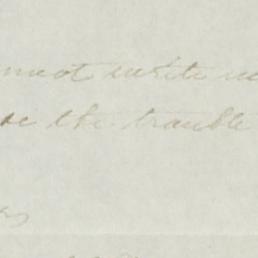 nnot write m
ae the trouble
rs